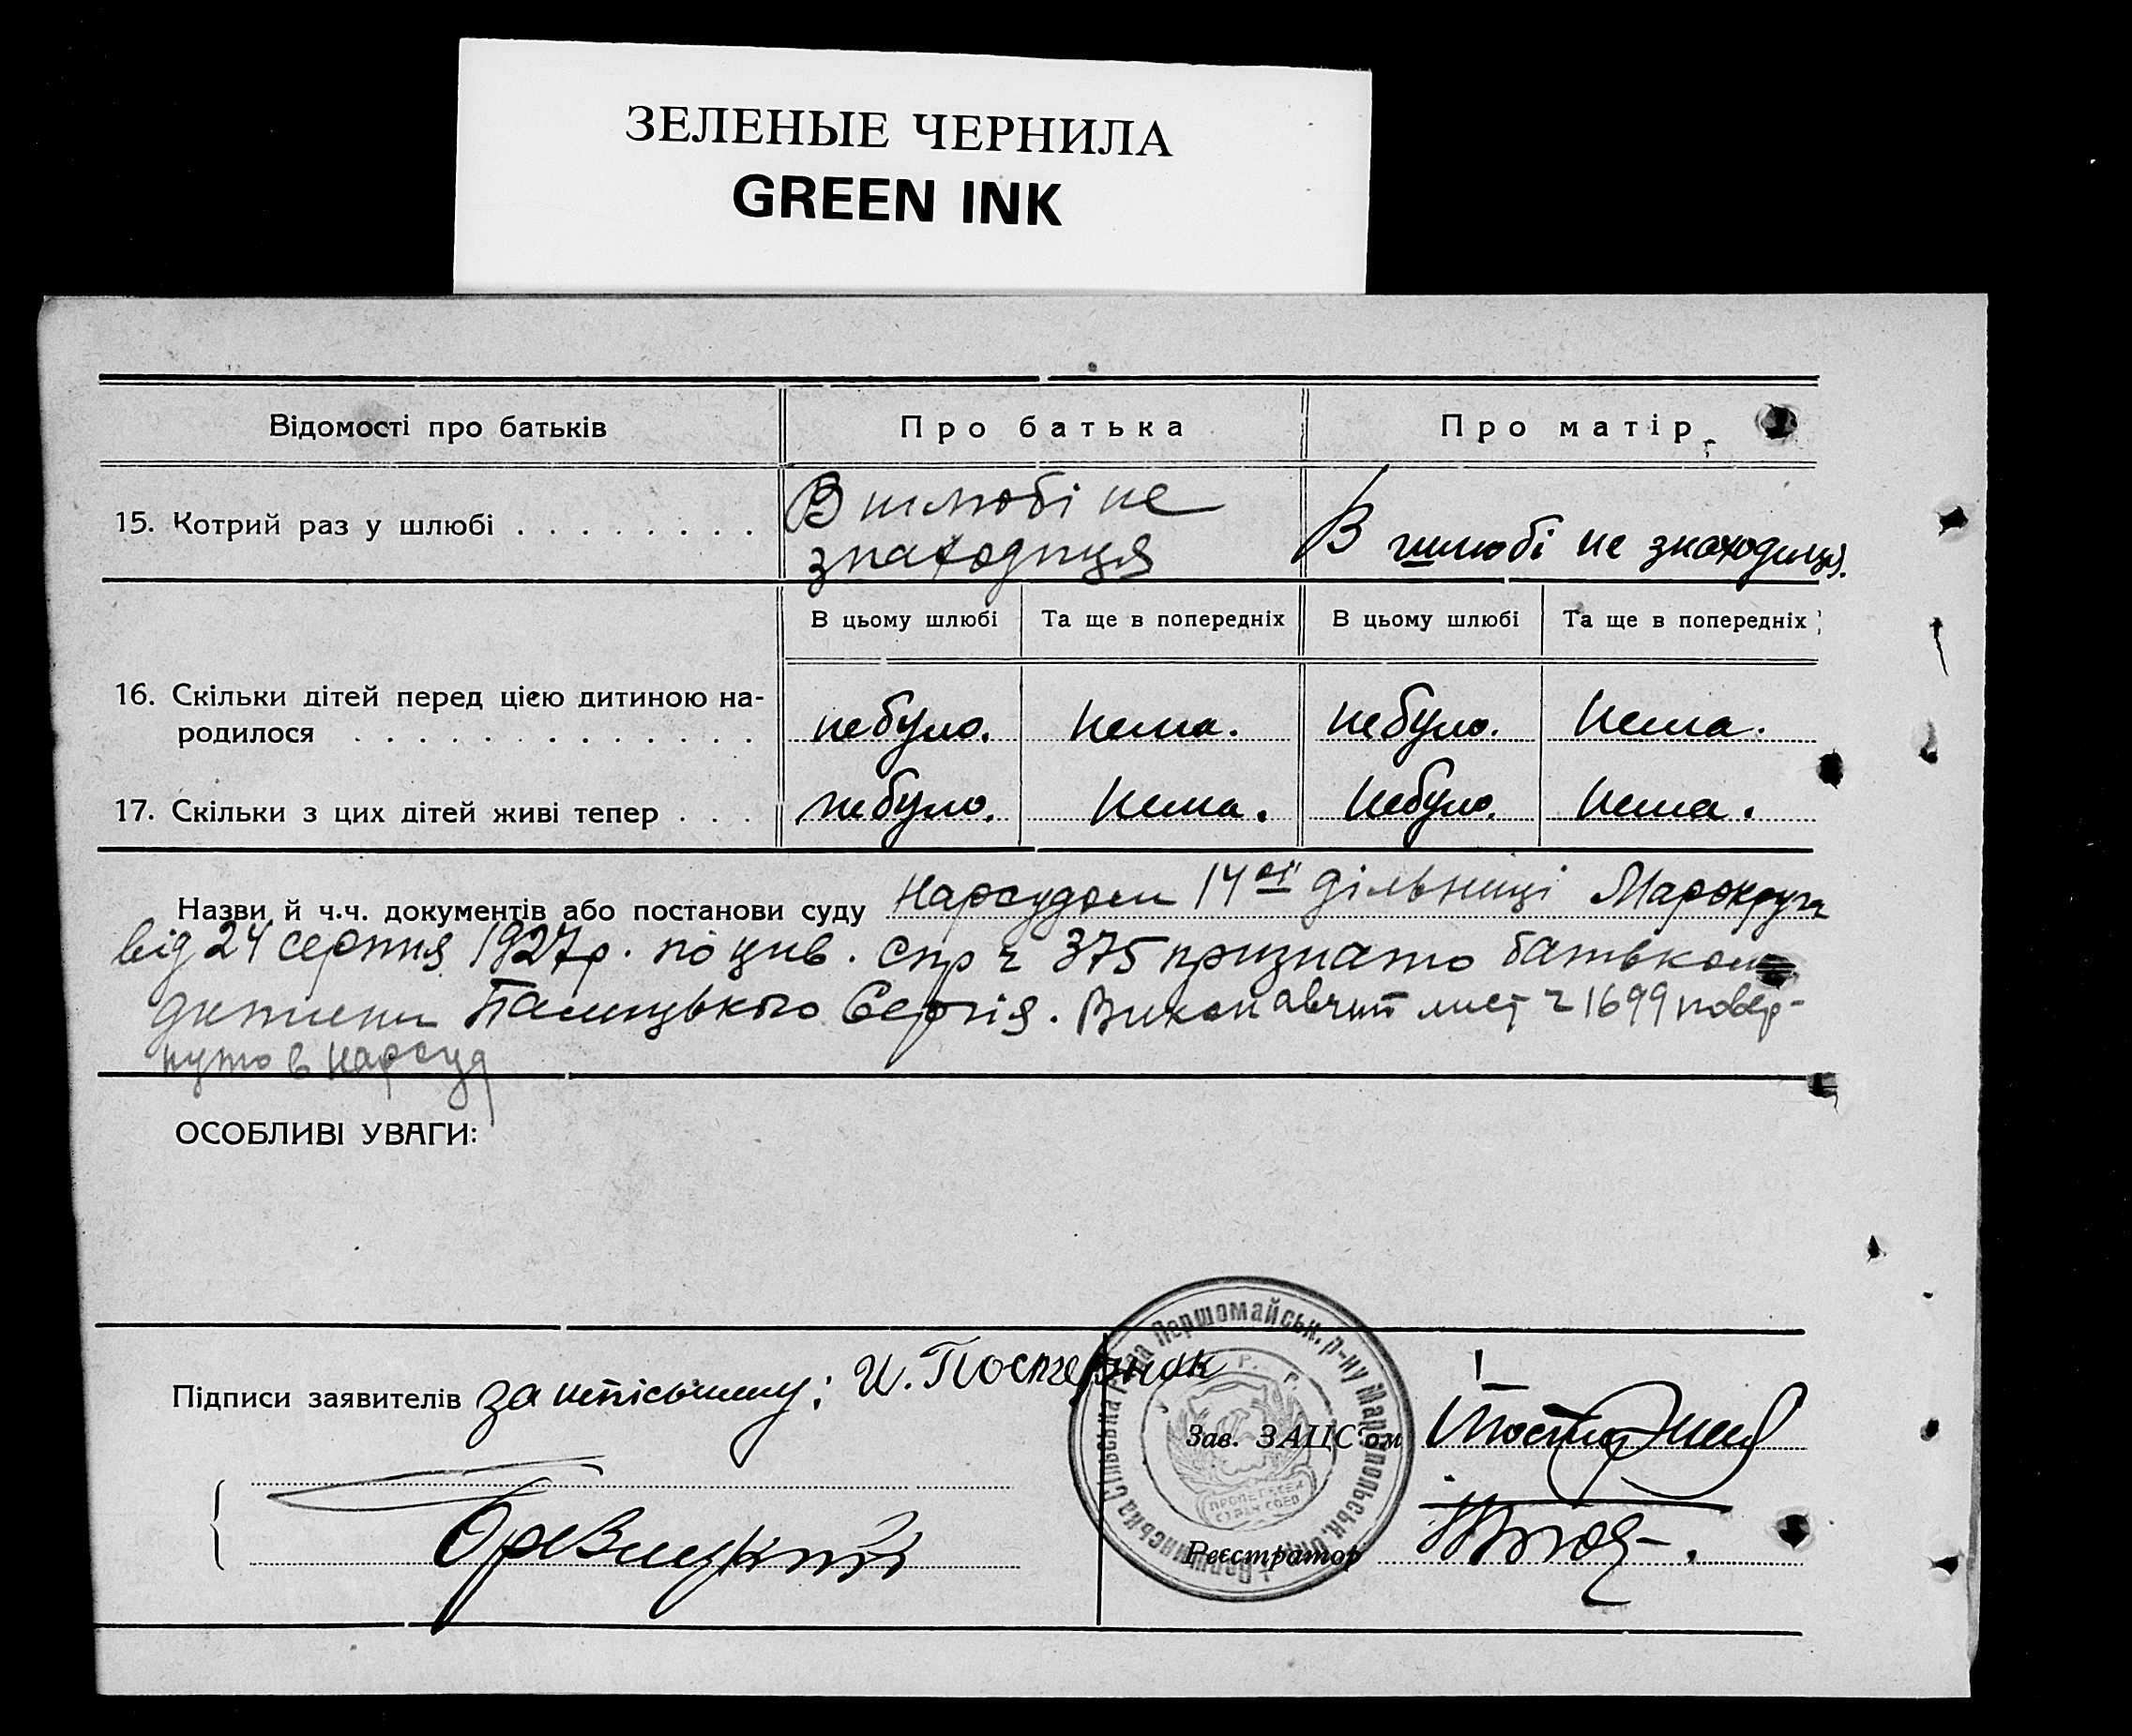 ЗЕЛЕНЫЕ ЧЕРНИЛА
GREEN INK
Відомості про батьків Про батька Про матір
15. Котрий раз у шлюбі . . . . . . . . В шлюбі не знаходиця В шлюбі не знаходиця.
В цьому шлюбі Та ще в попередніх В цьому шлюбі Та ще в попередніх
16. Скільки дітей перед цією дитиною на-
родилося . . . . . . . . . . . . . небуло. нема. небуло. нема.
17. Скільки з цих дітей живі тепер . . . небуло. нема. небуло. нема.
Назви й ч.ч. документів або постанови суду Нарсудом 14ої дільниці Марокруга
від 24 серпня 1927р. по цив. спр ч 375 признато батьком
дитини Палицького Сергія. Виконавчий лист ч 1699 повер-
нуто в нарсуд
ОСОБЛИВІ УВАГИ:
Першомайськ. р-ну Маріюпольськ.
Підписи заявителів за
Зав. ЗАЦС'ом
Реєстратор